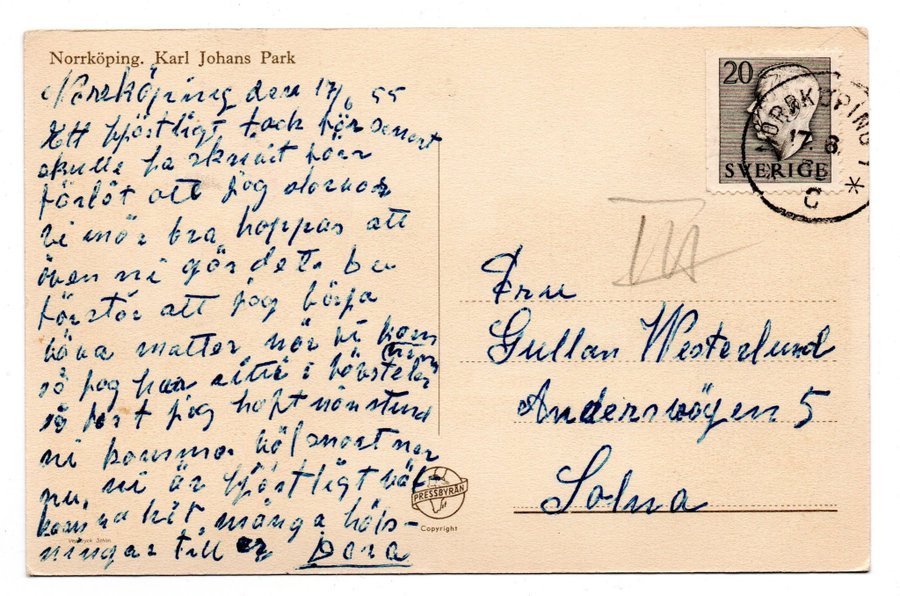 Norrköping. Karl Johans Park
Norrköping den 17/6 55
Ett hjärtligt tack för senast
skulle ha skrivit förr
förlåt att jag slarvar
vi mår bra hoppas att
även ni gör det. Du
förstår att jag börja
väva mattor när vi kom
hem
så jag har sitti i vävstolen
så fort jag haft nån stund
ni kommer väl snart ner
nu, ni är hjärtligt väl-
komna hit, många häls-
ningar till er Dora
20
SVERIGE
NORRKÖPING 1
17 6
C
VII
Fru
Gullan Westerlund
Andersvägen 5
Solna
PRESSBYRÅN
Copyright